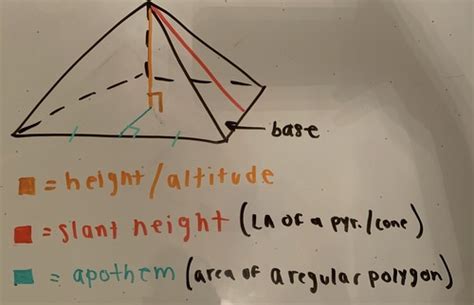 base
= height/altitude
= slant height (LA of a pyr./cone)
= apothem (area of a regular polygon)